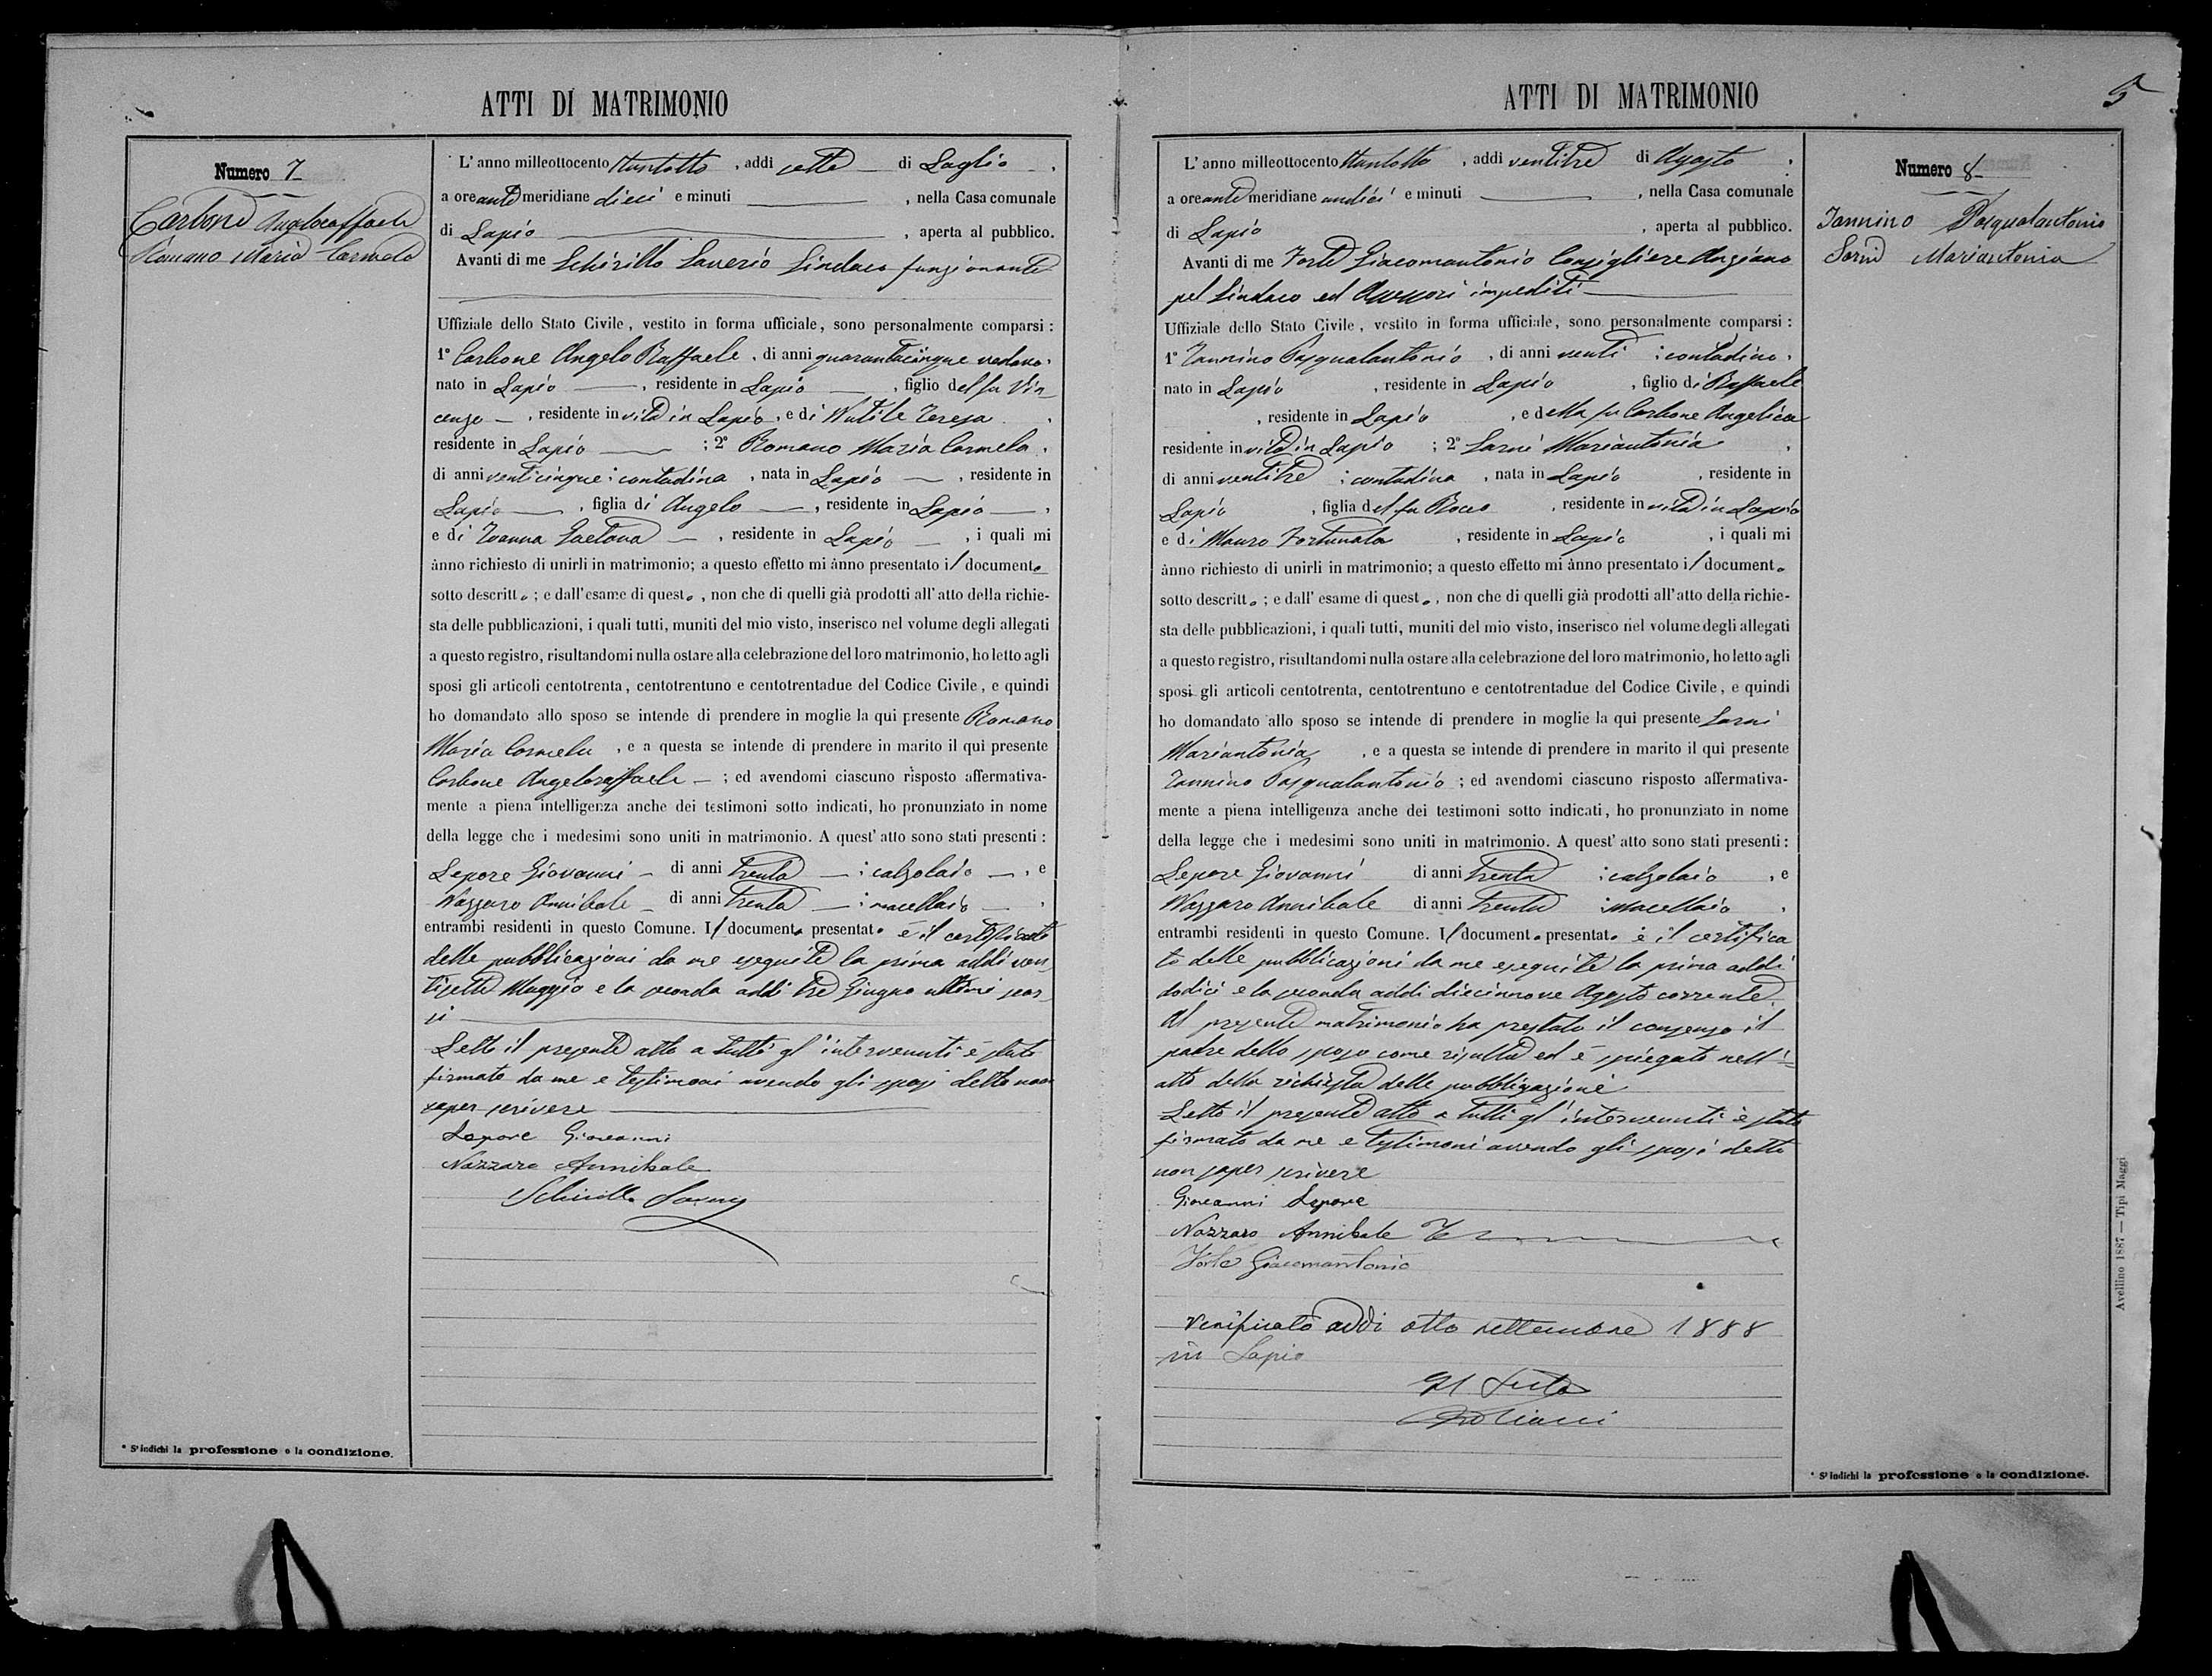 ATTI DI MATRIMONIO
Numero 7
Carbone Angeloraffaele
Romano Maria Carmela
L'anno milleottocento ttantotto, addi sette di Luglio,
a ore antemeridiane dieci e minuti , nella Casa comunale
di Lapio , aperta al pubblico.
Avanti di me Schirillo Saverio Sindaco funzionante
Uffiziale dello Stato Civile, vestito in forma ufficiale, sono personalmente comparsi:
1° Carbone Angelo Raffaele, di anni quarantacinque vedovo,
nato in Lapio , residente in Lapio , figlio del fu Vin
cenzo , residente in vita in Lapio, e di Nutile Teresa ,
residente in Lapio ; 2° Romano Maria Carmela,
di anni venticinque; contadina, nata in Lapio , residente in
Lapio , figlia di Angelo , residente in Lapio ,
e di Gaetana , residente in Lapio , i quali mi
ànno richiesto di unirli in matrimonio; a questo effetto mi ànno presentato il documento
sotto descritto; e dall'esame di questo, non che di quelli già prodotti all'atto della richie-
sta delle pubblicazioni, i quali tutti, muniti del mio visto, inserisco nel volume degli allegati
a questo registro, risultandomi nulla ostare alla celebrazione del loro matrimonio, ho letto agli
sposi gli articoli centotrenta, centotrentuno e centotrentadue del Codice Civile, e quindi
ho domandato allo sposo se intende di prendere in moglie la qui presente Romano
Maria Carmela , e a questa se intende di prendere in marito il qui presente
Carbone Angeloraffaele ; ed avendomi ciascuno risposto affermativa-
mente a piena intelligenza anche dei testimoni sotto indicati, ho pronunziato in nome
della legge che i medesimi sono uniti in matrimonio. A quest'atto sono stati presenti:
Lepore Giovanni di anni trenta ; calzolaio , e
Nazzaro Annibale di anni trenta ; macellaio ,
entrambi residenti in questo Comune. Il documento presentato è il certificato
delle pubblicazioni da me eseguite la prima addì ven
tisette Maggio e la seconda addì tre Giugno ultimi scor
si
Letto il presente atto a tutti gl'intervenuti è stato
firmato da me e testimoni avendo gli sposi detto non
saper scrivere
Lepore Giovanni
Nazzaro Annibale
Schirillo
* S'indichi la professione o la condizione.
ATTI DI MATRIMONIO
5
Numero 8
Iannino Pasqualantonio
Sarni Mariantonia
L'anno milleottocento ttantotto, addi ventitre di Agosto,
a ore antemeridiane undici e minuti , nella Casa comunale
di Lapio , aperta al pubblico.
Avanti di me Forte Giacomantonio Consigliere Anziano
pel Sindaco ed Assessori impediti
Uffiziale dello Stato Civile, vestito in forma ufficiale, sono personalmente comparsi:
1° Iannino Pasqualantonio, di anni venti ; contadino,
nato in Lapio , residente in Lapio , figlio di Raffaele
, residente in Lapio , e della fu Carbone Angelica
residente in vita in Lapio ; 2° Sarni Mariantonia ,
di anni ventitre ; contadina , nata in Lapio , residente in
Lapio , figlia del fu Rocco , residente in vita in Lapio
e di Mauro Fortunata , residente in Lapio , i quali mi
ànno richiesto di unirli in matrimonio; a questo effetto mi ànno presentato il documento
sotto descritto; e dall'esame di questo, non che di quelli già prodotti all'atto della richie-
sta delle pubblicazioni, i quali tutti, muniti del mio visto, inserisco nel volume degli allegati
a questo registro, risultandomi nulla ostare alla celebrazione del loro matrimonio, ho letto agli
sposi gli articoli centotrenta, centotrentuno e centotrentadue del Codice Civile, e quindi
ho domandato allo sposo se intende di prendere in moglie la qui presente Sarni
Mariantonia , e a questa se intende di prendere in marito il qui presente
Iannino Pasqualantonio ; ed avendomi ciascuno risposto affermativa-
mente a piena intelligenza anche dei testimoni sotto indicati, ho pronunziato in nome
della legge che i medesimi sono uniti in matrimonio. A quest'atto sono stati presenti:
Lepore Giovanni di anni trenta ; calzolaio , e
Nazzaro Annibale di anni trenta ; macellaio ,
entrambi residenti in questo Comune. Il documento presentato è il certifica
to delle pubblicazioni da me eseguite la prima addì
dodici e la seconda addì diecinnove Agosto corrente.
Al presente matrimonio ha prestato il consenso il
padre dello sposo come risulta ed è spiegato nell'
atto della richiesta delle pubblicazioni
Letto il presente atto a tutti gl'intervenuti è stato
firmato da me e testimoni avendo gli sposi detto
non saper scrivere
Giovanni Lepore
Nazzaro Annibale
Forte Giacomantonio
Verificato addì otto settembre 1888
in Lapio
Avellino 1887 — Tipi Maggi
* S'indichi la professione o la condizione.